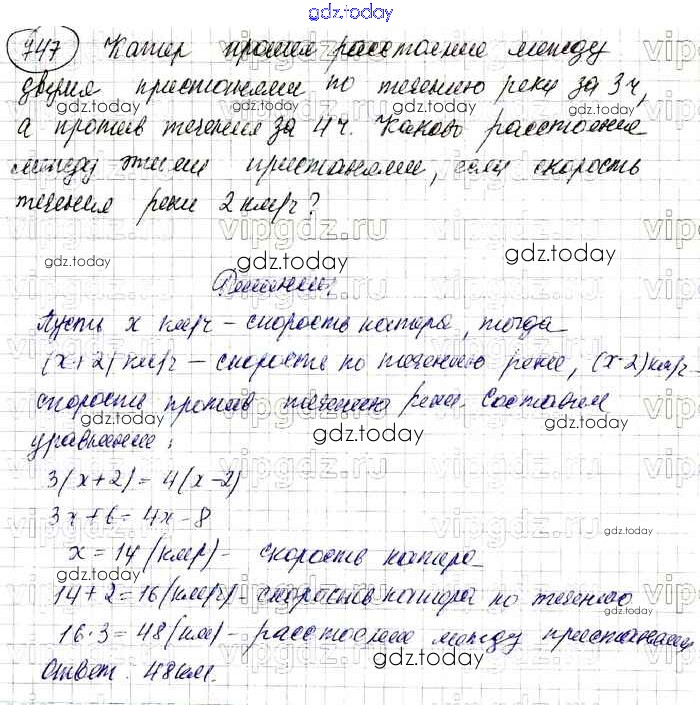 gdz.today
747 Катер прошел расстояние между
двумя пристанями по течению реки за 3ч,
а против течения за 4ч. Каково расстояние
между этими пристанями, если скорость
течения реки 2км/ч?
Решение:
Пусть x км/ч – скорость катера, тогда
(x+2) км/ч – скорость по течению реки, (x-2) км/ч –
скорость против течения реки. Составим
уравнение:
3(x+2)=4(x-2)
3x+6=4x-8
x=14(км/ч) – скорость катера
14+2=16(км/ч) – скорость катера по течению
16·3=48(км) – расстояние между пристанями
Ответ: 48км.